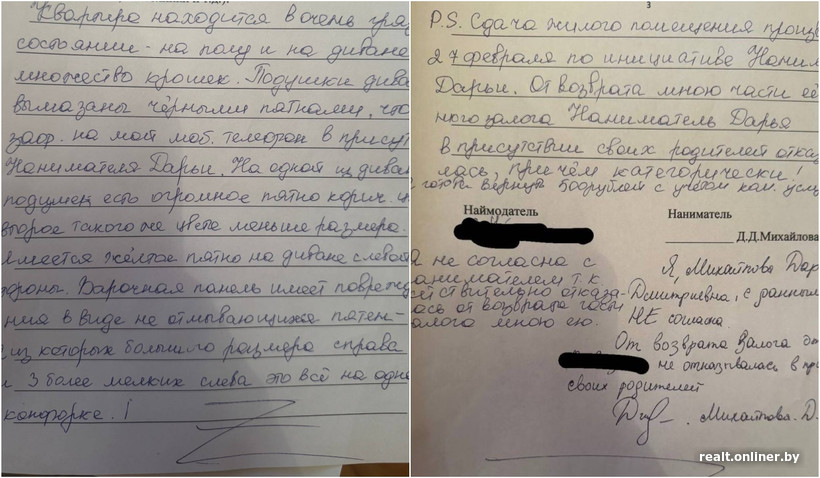 Квартира находится в очень гряз
состоянии - на полу и на диване
множество крошек. Подушки дива
вымазаны чёрными пятнами, что
заф. на мой моб. телефон в присут
Нанимателя Дарьи. На одной из диван
подушек есть огромное пятно корич. ц
второе такого же цвета меньше размера.
Имеется жёлтое пятно на диване слевой
тороны. Варочная панель имеет поврежд
ния в виде не отмывающихся пятен-
из которых большого размера справа
и 3 более мелких слева это всё на одно
конфорке. !
3
P.S. Сдача жилого помещения произв
27 февраля по инициативе Наним
Дарьи. От возврата мною части её
ного залога Наниматель Дарья
в присутствии своих родителей отказ
лась, причём категорически!
готова вернуть 500рублей с учётом ком. услу
Наймодатель
Наниматель
Д.Д.Михайлова
а не согласна с
анимателем т.к.
ствительно отказа-
ась от возврата части
алога мною ею.
Я, Михайлова Дар
Дмитриевна, с данным
НЕ согласна.
От возврата Залога
не отказывалась в пр
своих родителей
Михайлова. Д.
realt.onliner.by